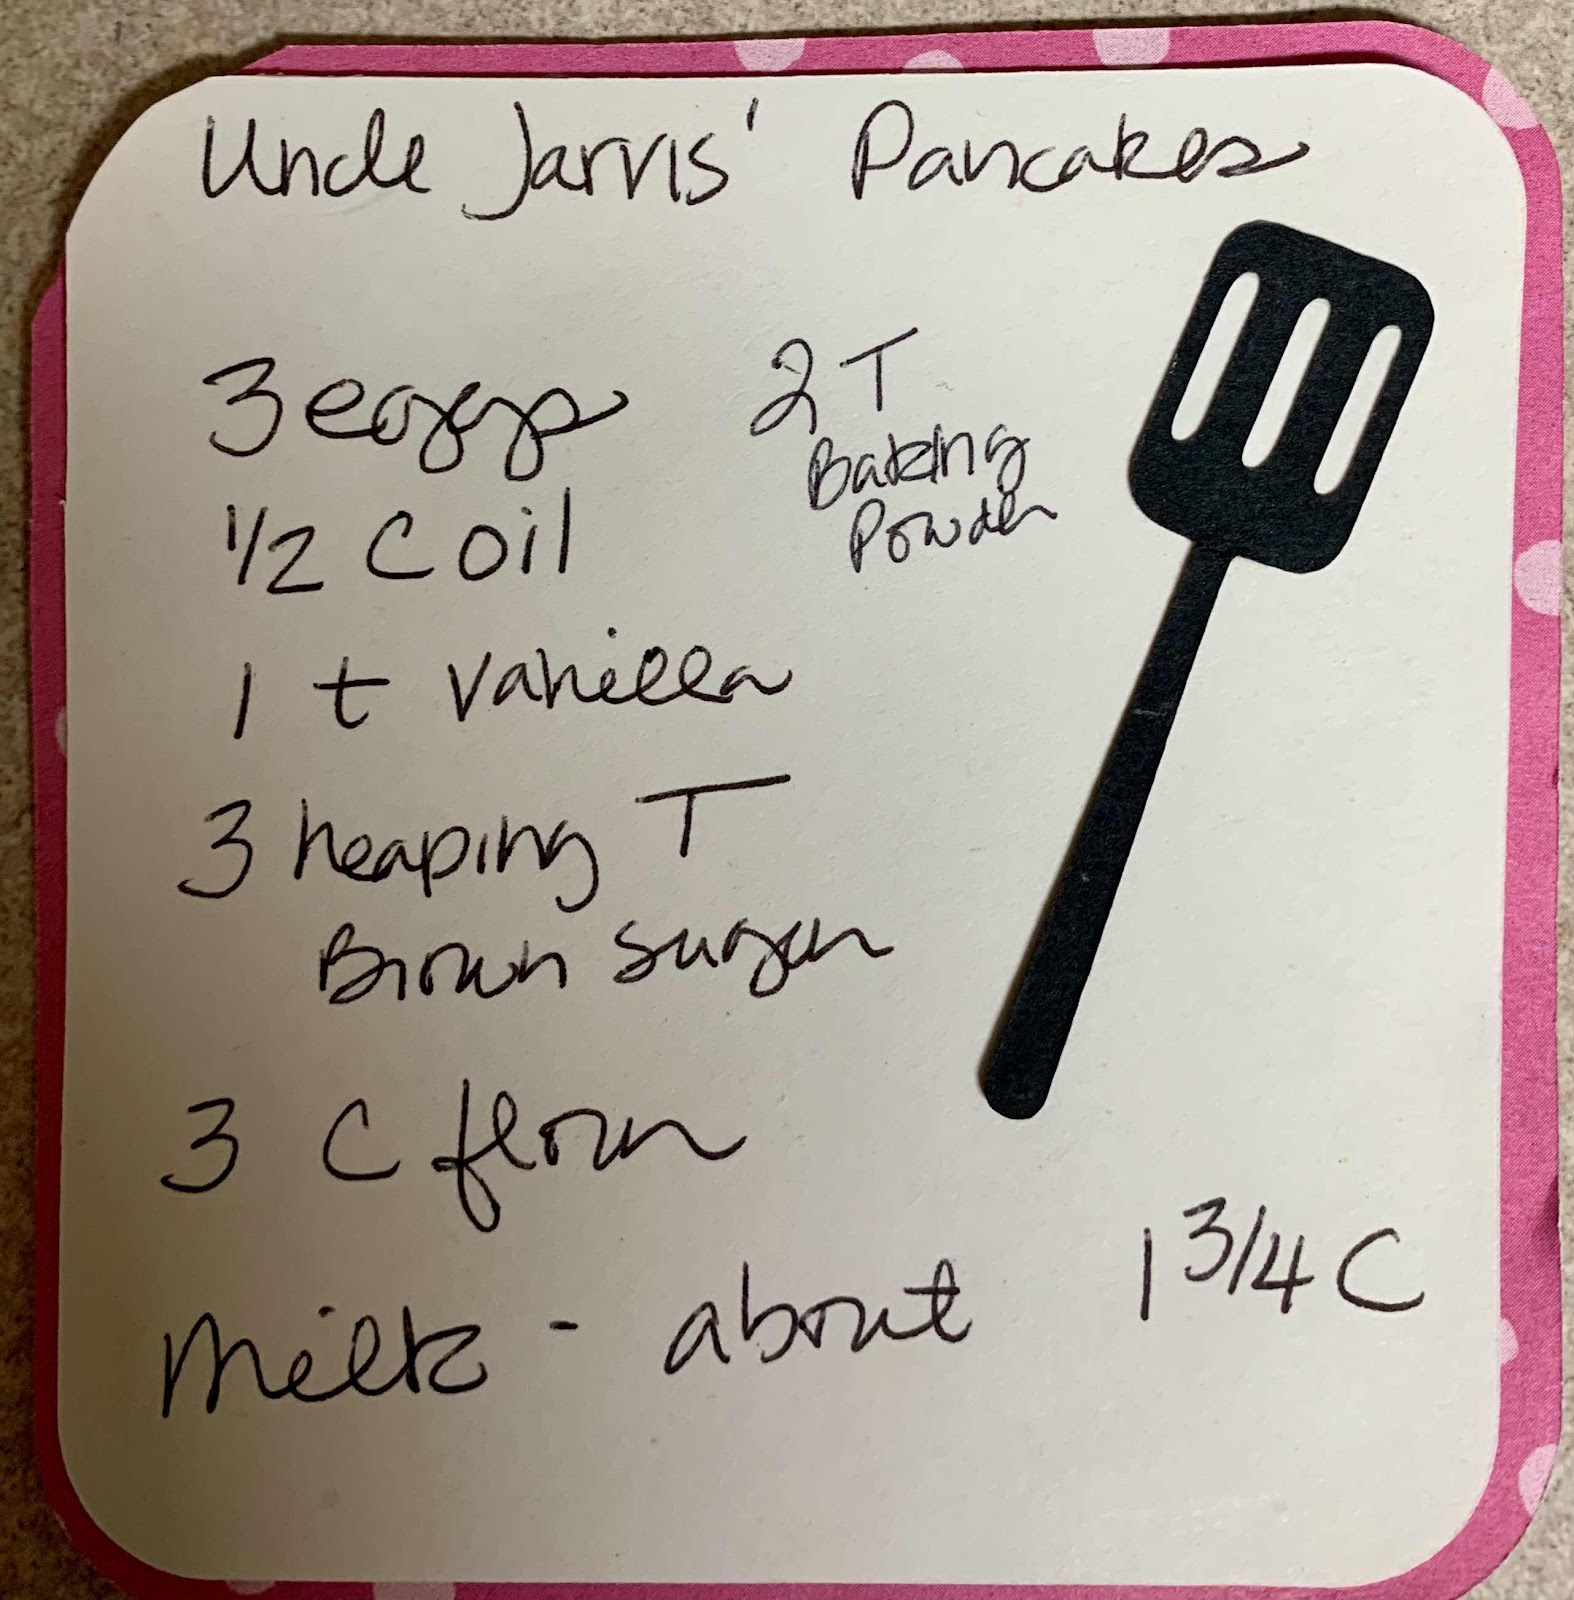 Uncle Jarvis' Pancakes
3 eggs
2 T
Baking
Powder
1/2 C oil
1 t vanilla
3 heaping T
Brown sugar
3 C flour
Milk - about 1 3/4 C